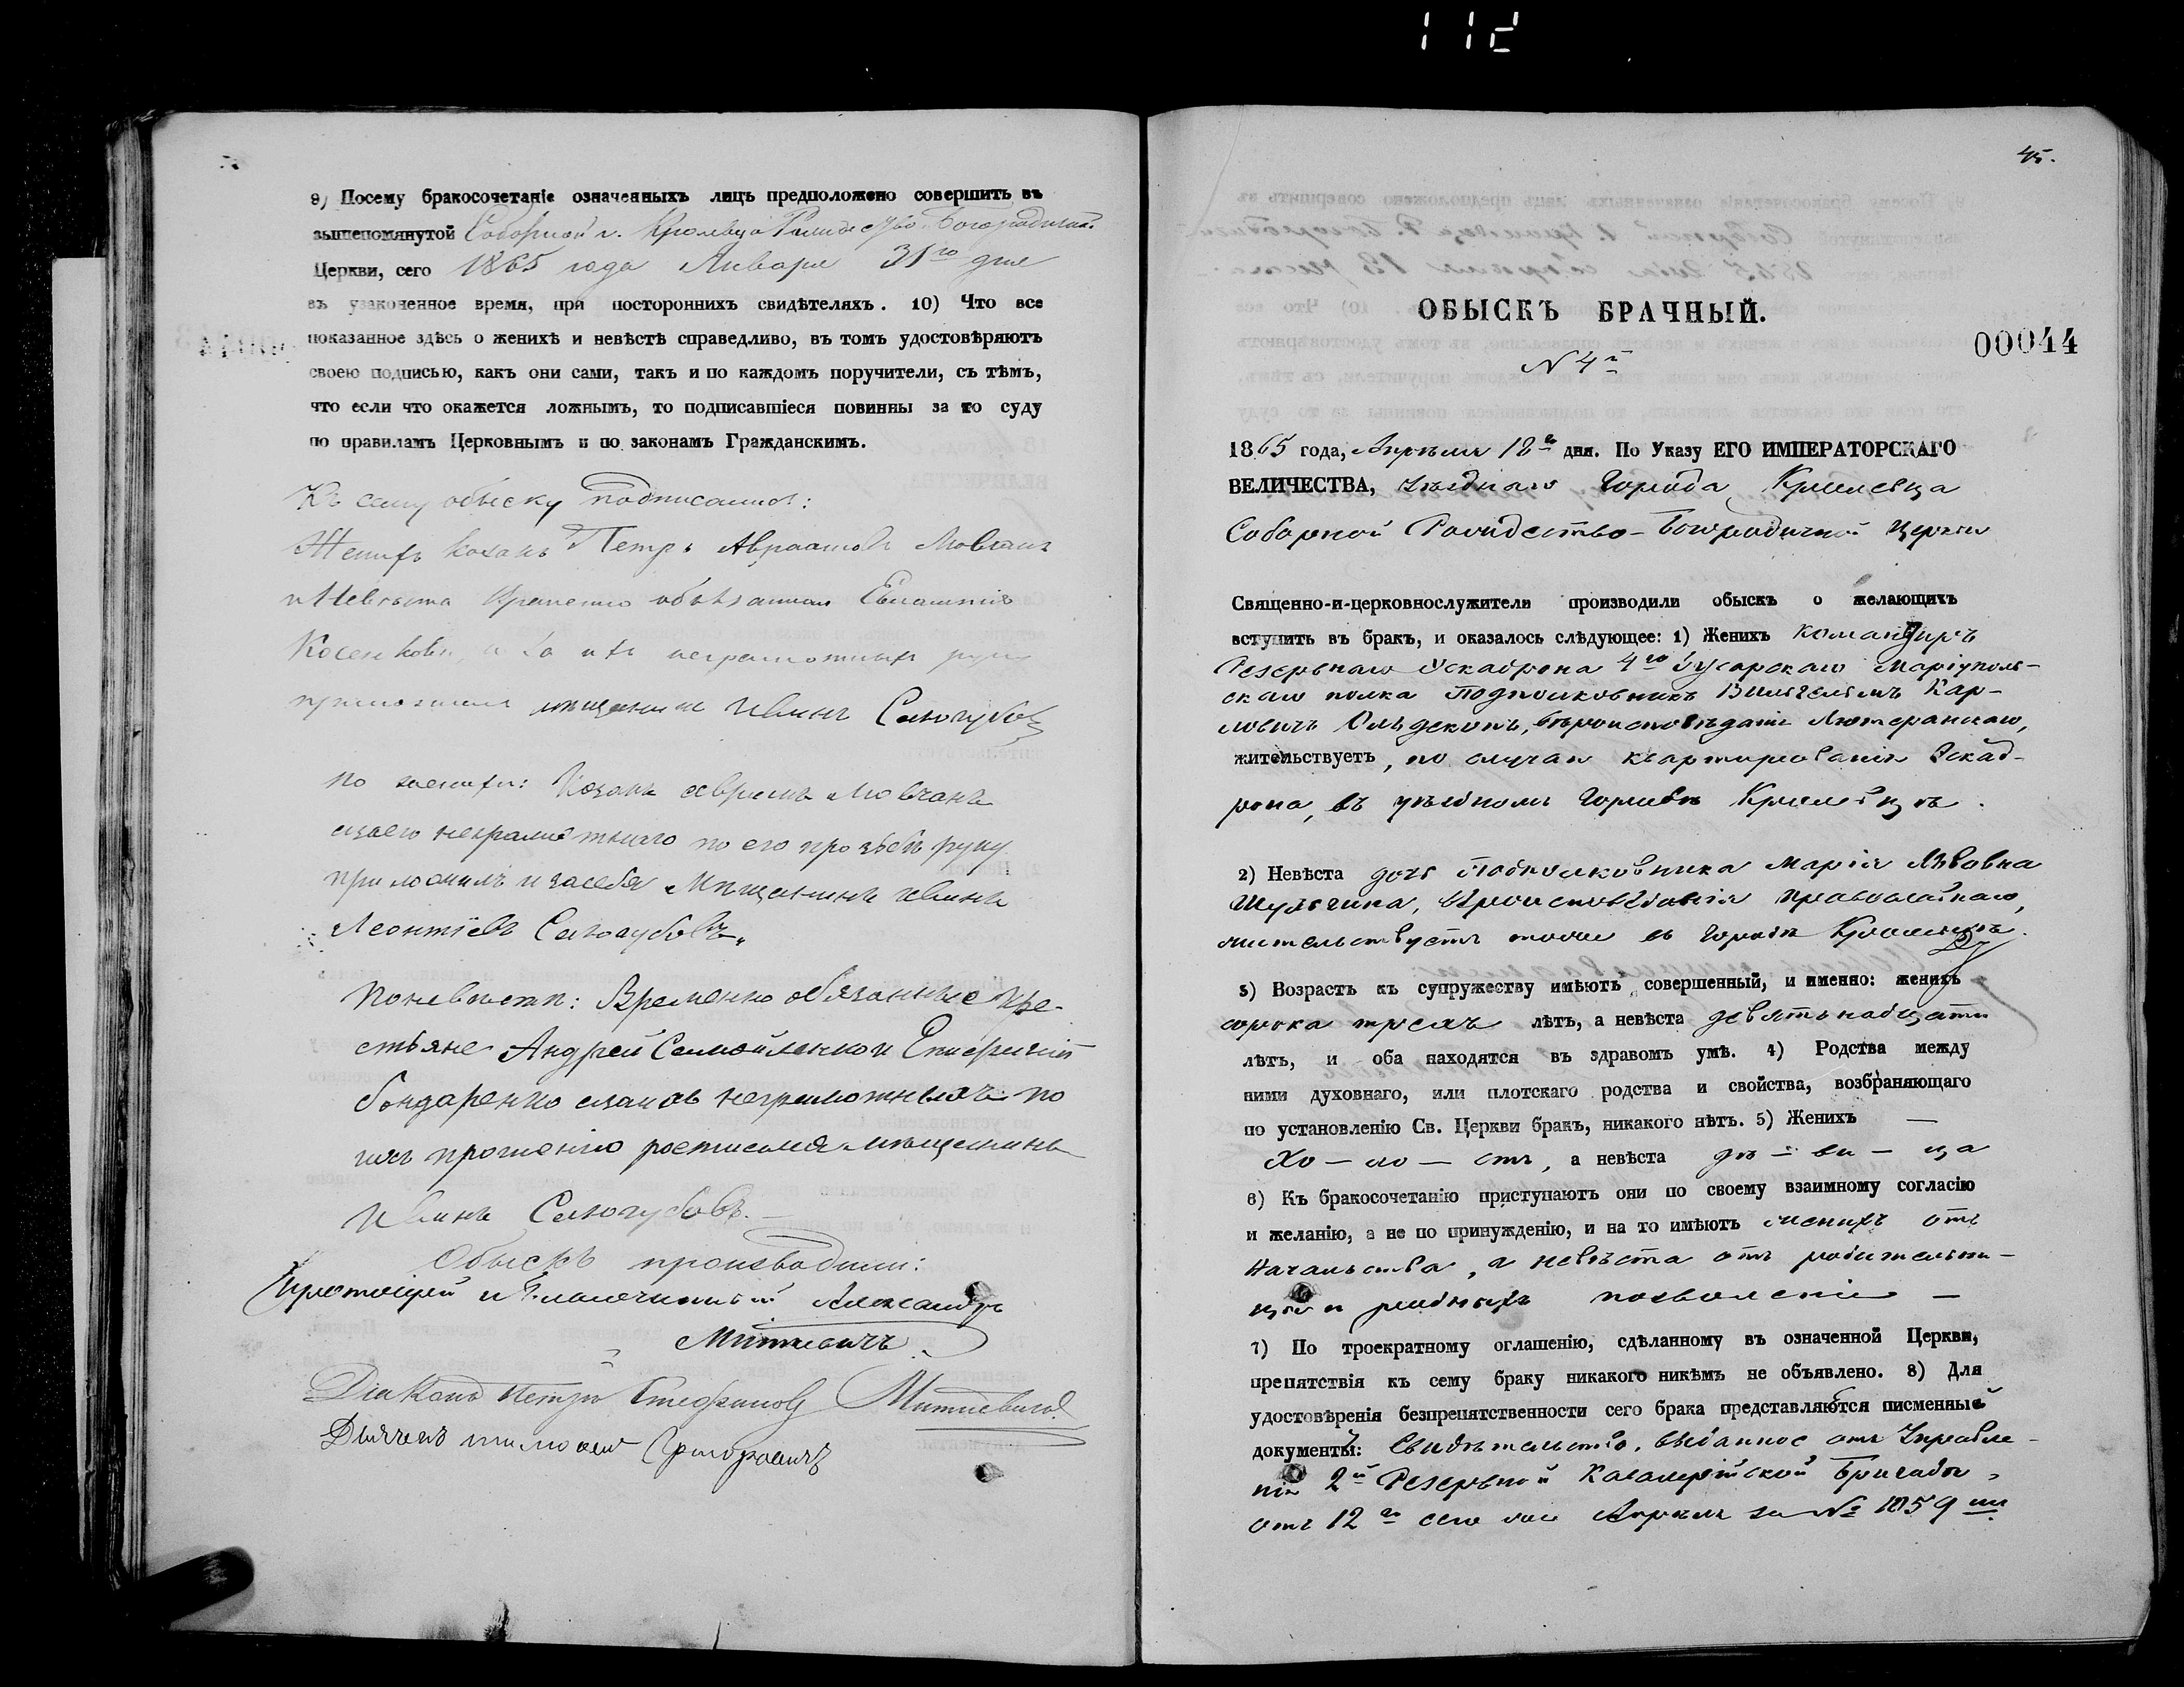 9) Посему бракосочетаніе означенныхъ лицъ предположено совершить въ
вышепомянутой Соборной г. Кролевца Рождество-Богородичной
Церкви, сего 1865 года Января 31го дня
въ узаконенное время, при постороннихъ свидѣтеляхъ. 10) Что все
показанное здѣсь о женихѣ и невѣстѣ справедливо, въ томъ удостовѣряютъ
своею подписью, какъ они сами, такъ и по каждомъ поручители, съ тѣмъ,
что если что окажется ложнымъ, то подписавшіеся повинны за то суду
по правиламъ Церковнымъ и по законамъ Гражданскимъ.
Къ сему обыску подписались:
Женихъ козакъ Петръ Авраамовъ Мовчанъ
и Невѣста Временно обязанная
Косенкова, а за ихъ неграмотныхъ руку
приложилъ мѣщанинъ Иванъ Сологубовъ
по женихѣ: Козакъ Аврамъ Мовчанъ
а за его неграмотнаго по его прозьбѣ руку
приложилъ и за себя Мѣщанинъ Иванъ
Леонтіевъ Сологубовъ
По невѣстѣ: Временно обязанные кре-
стьяне Андрей Самойленко и
Бондаренко а за ихъ неграмотныхъ по
ихъ прошенію росписался мѣщанинъ
Иванъ Сологубовъ.
Обыскъ производили:
Протоіерей и Благочинный Александръ
Миткевичъ
Діаконъ Петръ Стефановъ Миткевичъ
Дьячекъ Тимофей Григоровичъ
45.
ОБЫСКЪ БРАЧНЫЙ.
00044
N 4й
1865 года, Апрѣля 12го дня. По Указу ЕГО ИМПЕРАТОРСКАГО
ВЕЛИЧЕСТВА, Уѣзднаго Города Кролевца
Соборной Рождество-Богородичной Церкви
Священно-и-церковнослужители производили обыскъ о желающихъ
вступить въ бракъ, и оказалось слѣдующее: 1) Женихъ командиръ
Резервнаго Эскадрона 4го Гусарскаго Маріуполь-
скаго полка Подполковникъ Вильгельмъ Кар-
ловичъ вѣроисповѣданія Лютеранскаго,
жительствуетъ, по случаю квартированія Эскад-
рона, въ уѣздномъ Городѣ Кролевцѣ.
2) Невѣста дочь Подполковника Марія Львовна
Шульгина, вѣроисповѣданія православнаго,
жительствуетъ тоже въ городѣ Кролевцѣ.
3) Возрастъ къ супружеству имѣютъ совершенный, и именно: женихъ
сорока трехъ лѣтъ, а невѣста девятьнадцати
лѣтъ, и оба находятся въ здравомъ умѣ. 4) Родства между
ними духовнаго, или плотскаго родства и свойства, возбраняющаго
по установленію Св. Церкви бракъ, никакого нѣтъ. 5) Женихъ —
Хо — ло — стъ, а невѣста дѣ — ви — ца
6) Къ бракосочетанію приступаютъ они по своему взаимному согласію
и желанію, а не по принужденію, и на то имѣютъ женихъ отъ
Начальства, а невѣста отъ родительни-
цы и родныхъ позволеніе —
7) По троекратному оглашенію, сдѣланному въ означенной Церкви,
препятствія къ сему браку никакого никѣмъ не объявлено. 8) Для
удостовѣренія безпрепятственности сего брака представляются писменные
документы: Свидѣтельство, выданное отъ Управле-
нія 2й Резервной Кавалерійской Бригады,
отъ 12го сего же Апрѣля за № 1059мъ.